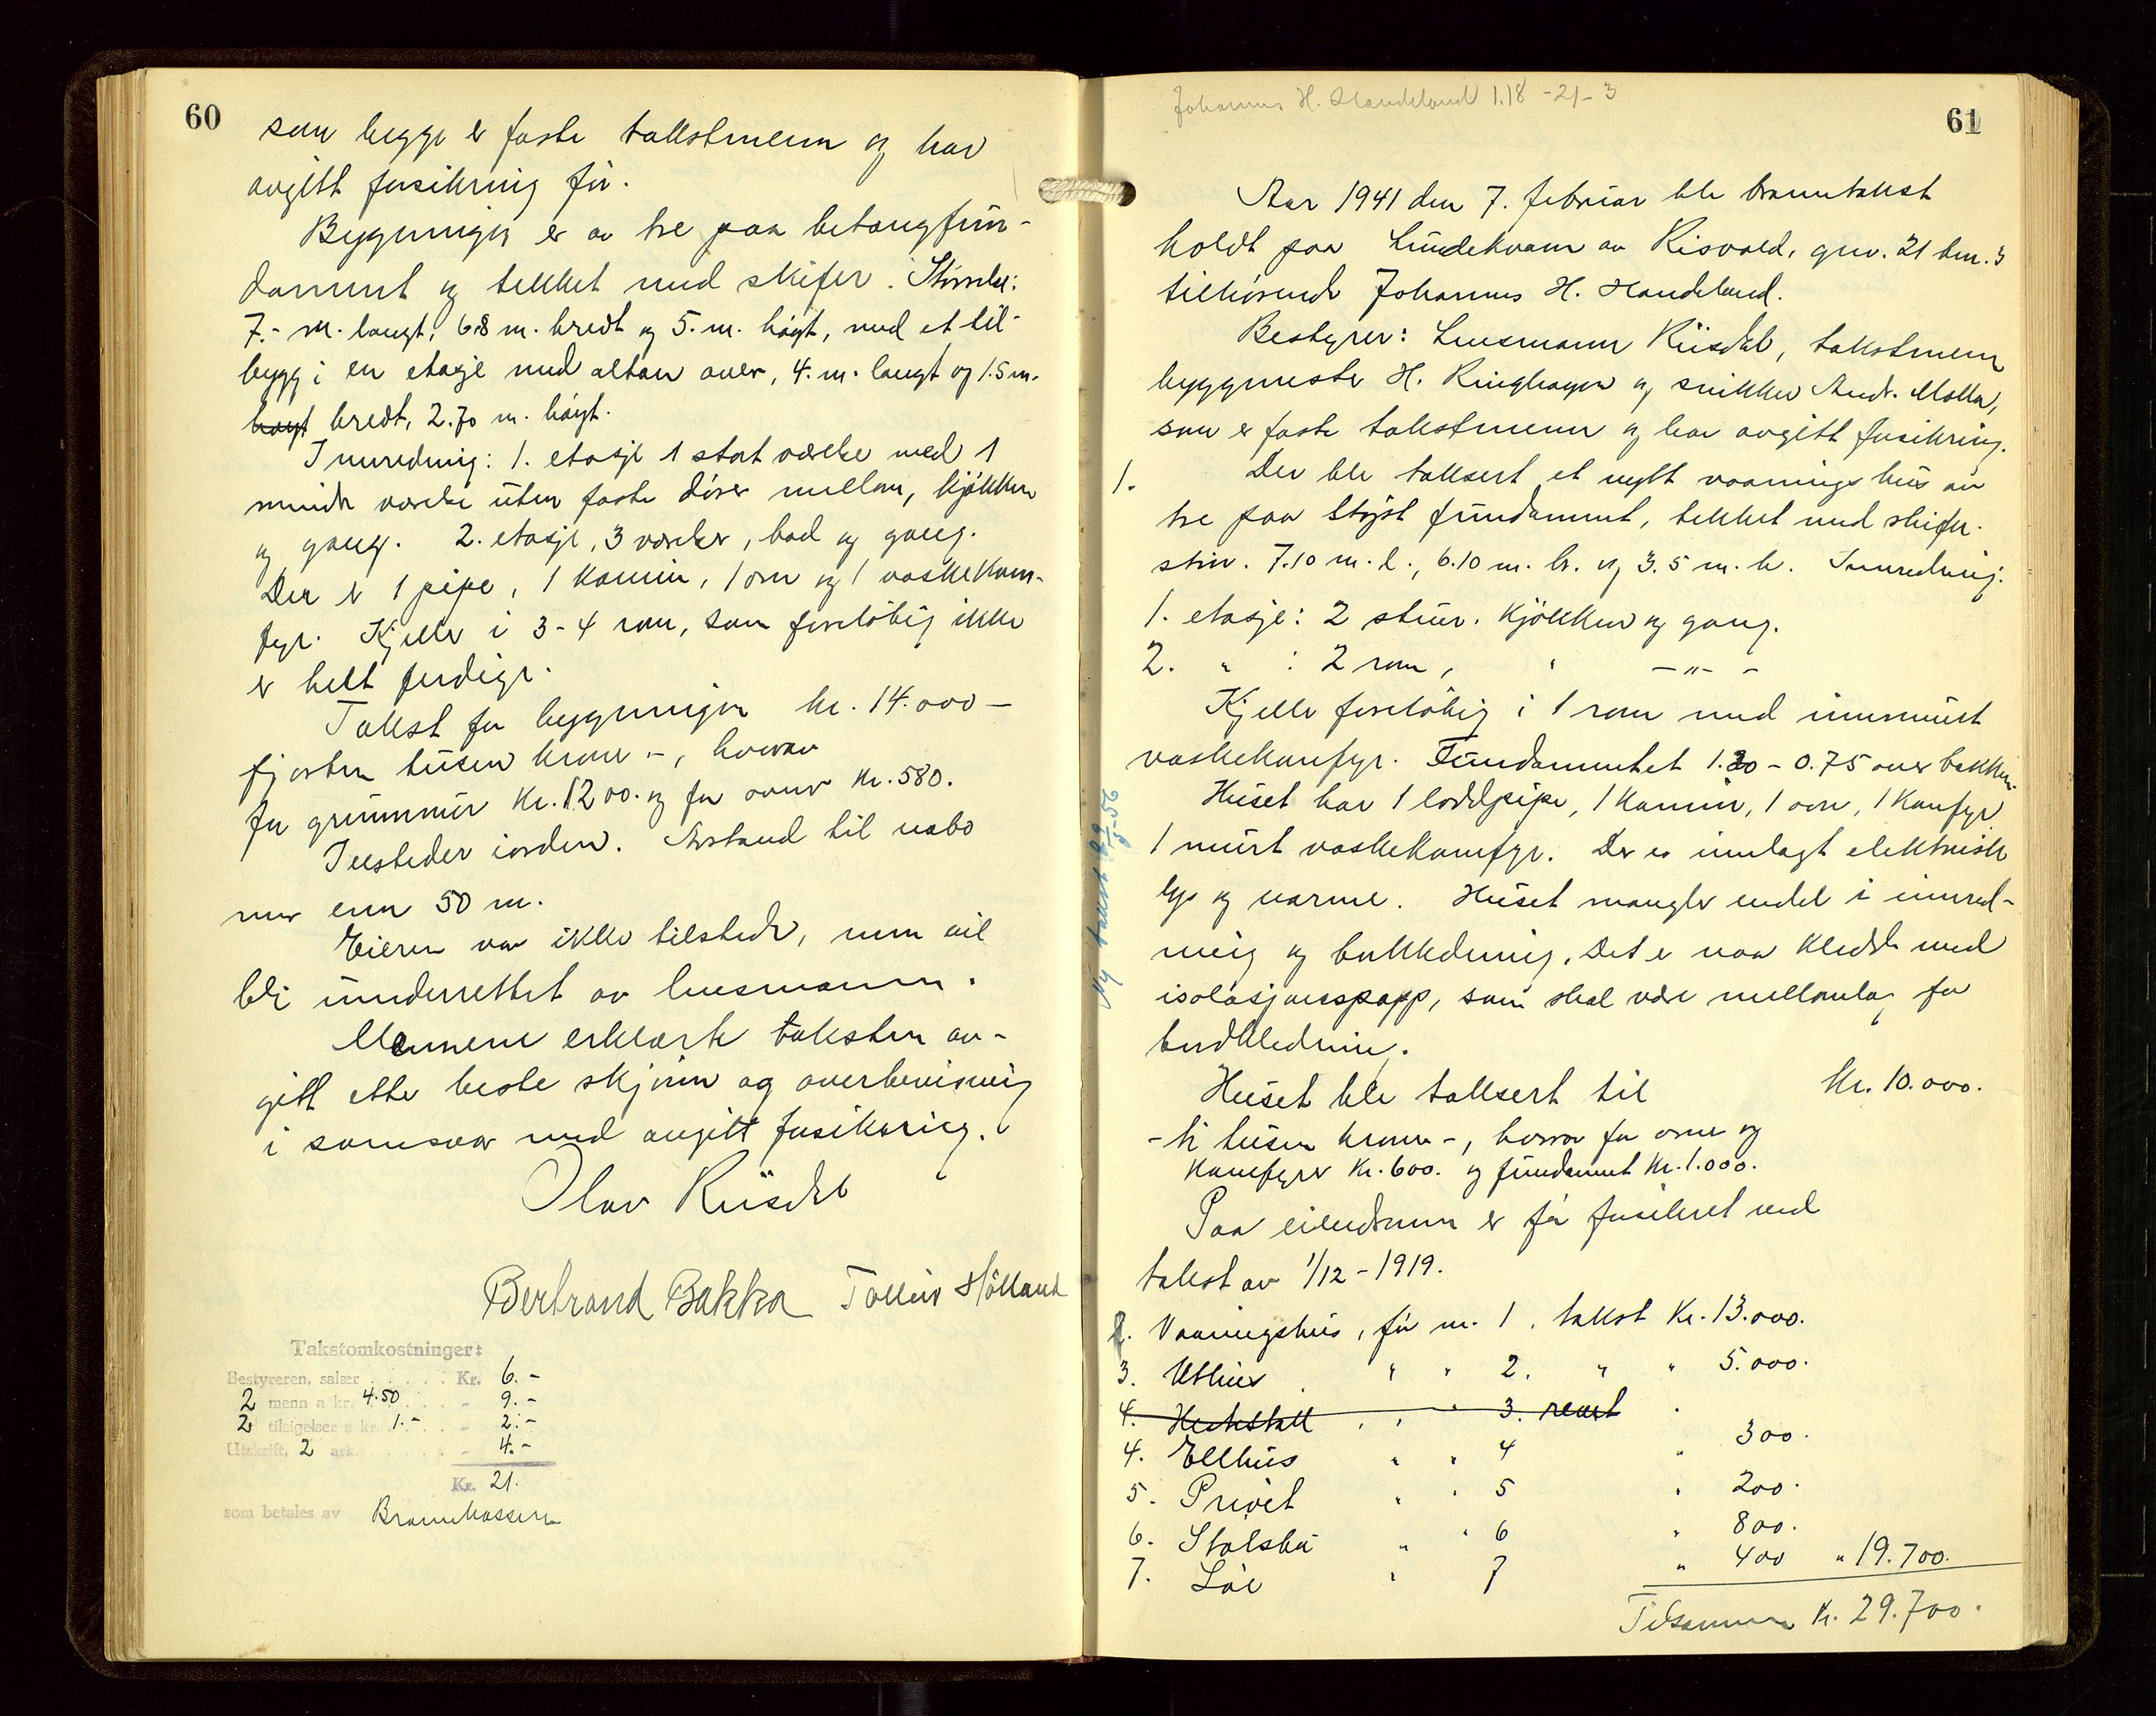 60
som begge er faste takstmenn og har
avgitt forsikring før.
Bygningen er av tre paa betongfun-
dament og tekket med skifer. Størrelse:
7.- m. langt, 6.8 m. bredt og 5. m. høgt, med et til-
bygg i en etasje med altan over, 4. m. langt og 1.5 m.
høgt bredt, 2.70 m. høgt.
Innredning: 1. etasje 1 stort værelse med 1
mindre værelse uten faste dører mellom, kjøkken
og gang. 2. etasje, 3 værelser, bad og gang.
Der er 1 pipe, 1 kamin, 1 ovn og 1 vaskekom-
fyr. Kjeller i 3-4 rom, som foreløbig ikke
er helt ferdige.
Takst for bygningen kr. 14.000 -
fjorten tusen kroner -, hvorav
for grunnmur Kr. 1200. og for ovner Kr. 580.
Ilsteder i orden. Avstand til nabo
mer enn 50 m.
Eieren var ikke tilstede, men vil
bli underrettet av lensmannen.
Mennene erklærte taksten av-
gitt etter beste skjønn og overbevisning
i samsvar med avgitt forsikring.
Olav Riisdal
Bertrand Bakka Tolleiv Hølland
Takstomkostninger:
Bestyreren, salær . . . . . Kr. 6.-
2 menn a kr. 4.50 . . . . „ 9.-
2 tilsigelser a kr. 1.- . . . „ 2.-
Utskrift, 2 ark . . . . . „ 4.-
Kr. 21.
som betales av Brannkassen
Johannes H. Handeland 1.18 - 21 - 3
61
Aar 1941 den 7. februar ble branntakst
holdt paa Lindekvam av Risvold, gnr. 21 bnr. 3
tilhørende Johannes H. Handeland.
Bestyrer: Lensmann Riisdal, takstmenn
byggmester H. Ringhagen og snikker Andr. Molla,
som er faste takstmenn og har avgitt forsikring.
1. Der ble taksert et nytt vaaningshus av
tre paa støpt fundament, tekket med skifer.
størr. 7.10 m. l., 6.10 m. br. og 3.5 m. h. Innredning.
1. etasje: 2 stuer, kjøkken og gang.
2. " : 2 rom, " - " -
Kjeller foreløbig i 1 rom med innmurt
vaskekomfyr. Fundamentet 1.30 - 0.75 over bakken
Huset har 1 loddpipe, 1 kamin, 1 ovn, 1 komfyr
1 murt vaskekomfyr. Der er innlagt elektrisk
lys og varme. Huset mangler endel i innred-
ning og bordkledning. Det er naa kledd med
isolasjonspapp, som skal være mellomlag for
bordkledning.
Huset ble taksert til Kr. 10.000.
- ti tusen kroner -, hvorav for ovner og
komfyrer Kr. 600. og fundament Kr. 1.000.
Paa eiendommen er før forsikret ved
takst av 1/12 - 1919.
2. Vaaningshus, før nr. 1, takst Kr. 13.000.
3. Uthus " " 2. " " 5.000.
4. Hestestall " " 3. revet "
4. Eldhus " " 4 " 300.
5. Privet " " 5 " 200.
6. Stølsbu " " 6 " 800.
7. Løe " 7 " 400 " 19.700.
Tilsammen Kr. 29.700.
Ny takst 29/5-56